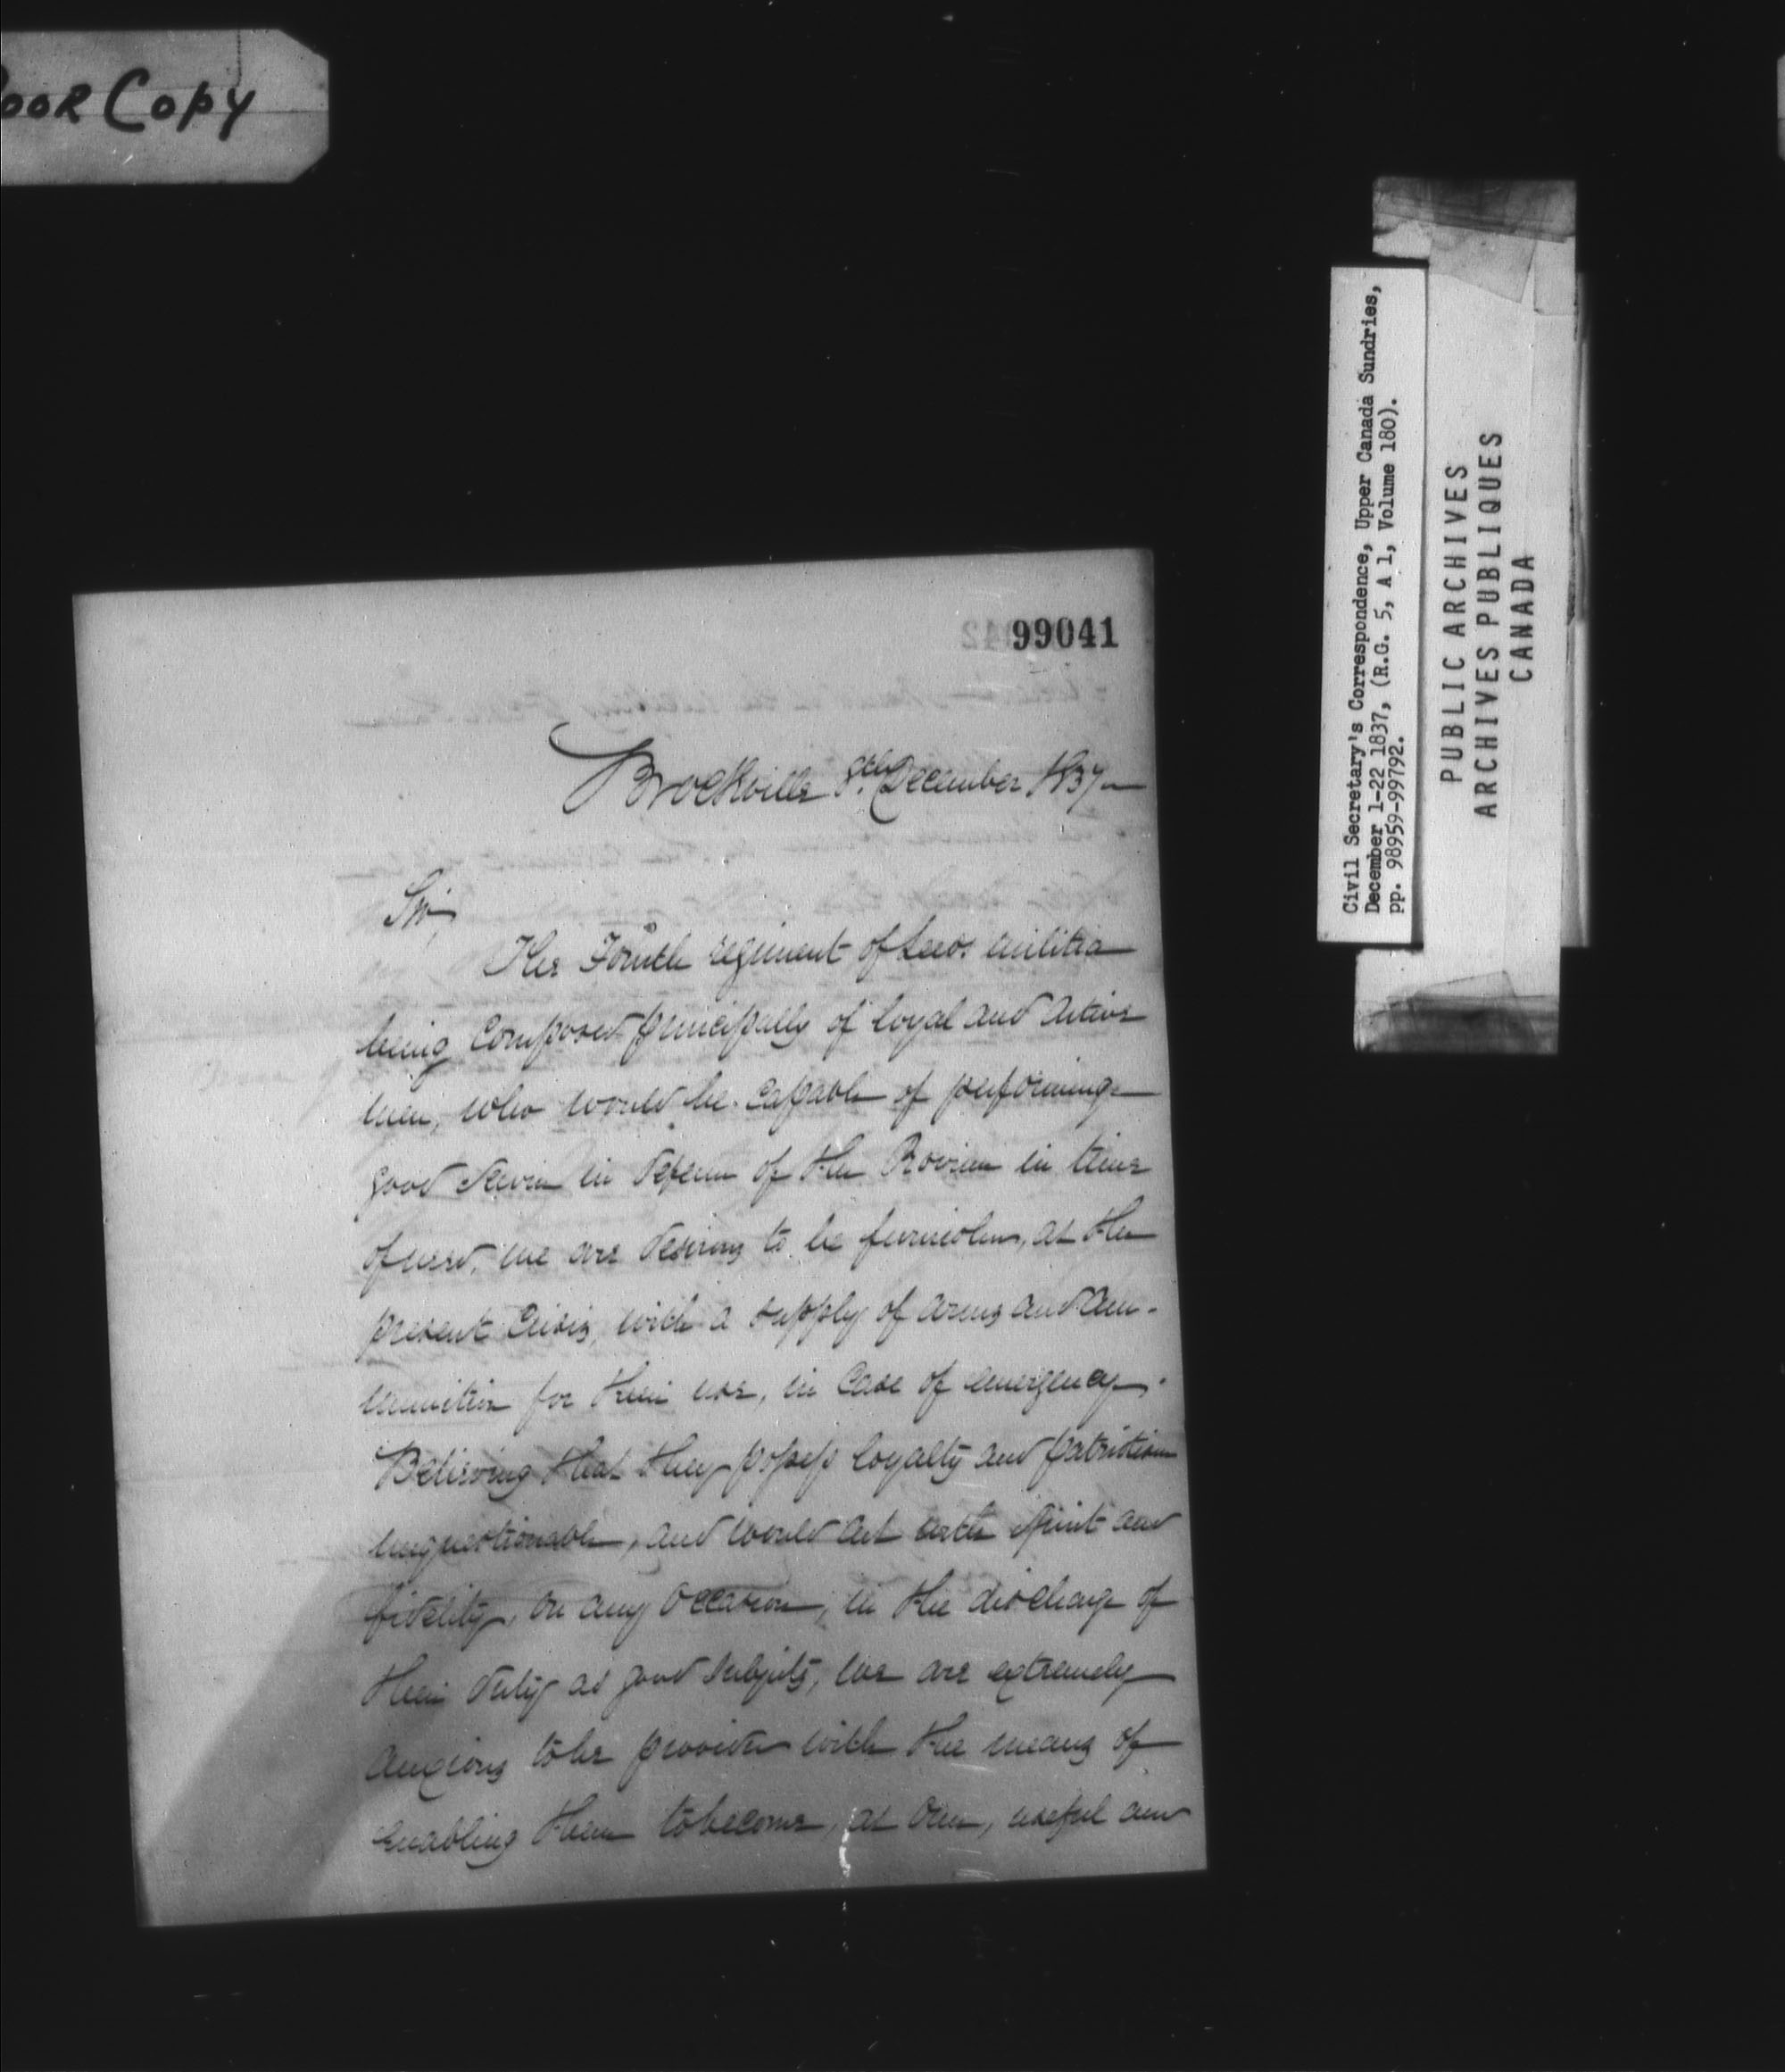 oor Copy
99041
Brockville 8th December 1837
Sir,
The Fourth regiment of Leeds militia
being composed principally of loyal and active
men, who would be capable of performing
good service in defence of the Province in time
of need, we are desirous to be furnished, at the
present crisis, with a supply of arms and am-
munition for their use, in case of emergency.
Believing that they possess loyalty and patriotism
unquestionable, and would act with spirit and
fidelity, on any occasion, in the discharge of
their duty as good subjects, we are extremely
anxious to be provided with the means of
enabling them to become, at once, useful and
Civil Secretary's Correspondence, Upper Canada Sundries,
December 1-22 1837, (R.G. 5, A 1, Volume 180).
pp. 98959-99792.
PUBLIC ARCHIVES
ARCHIVES PUBLIQUES
CANADA